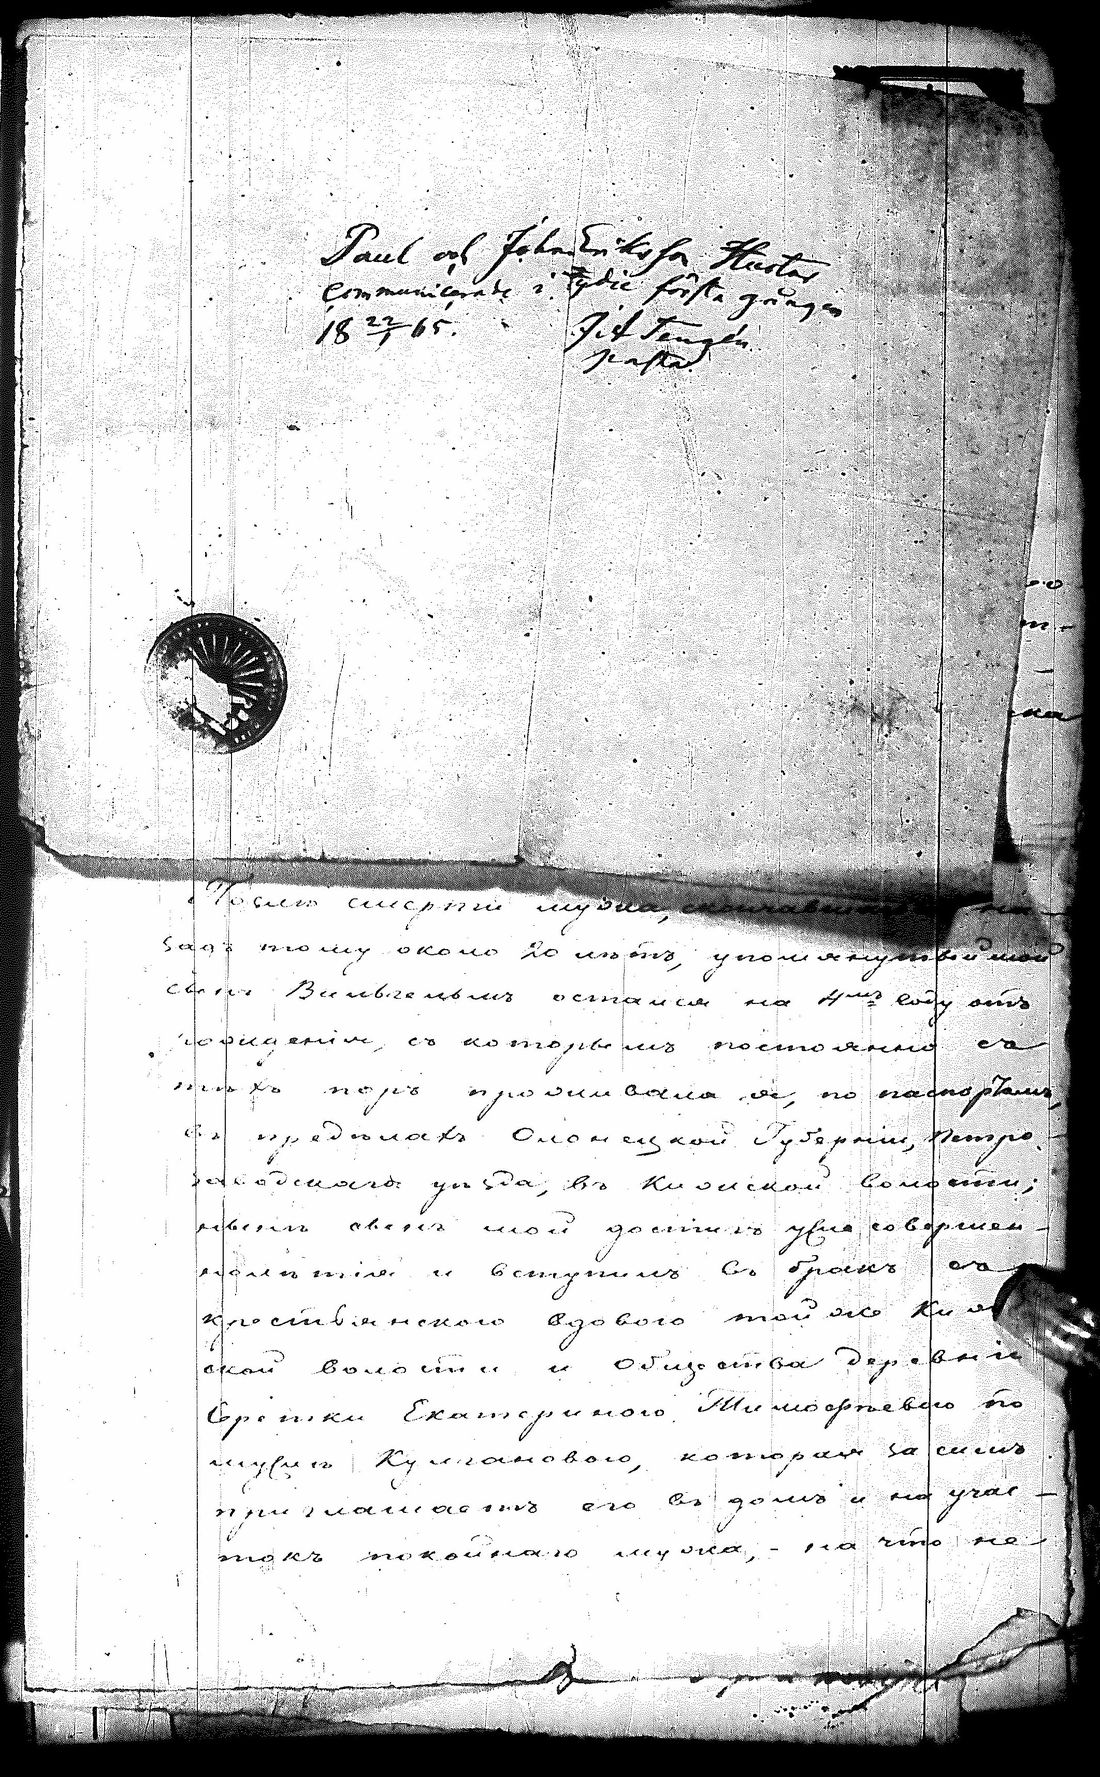 Paul och Johan Eriksson Hustar
communicerade i första gången
18 22/1 65. J. A. Tengén
pastor
Послѣ смерти мужа, скончавшагося на-
задъ тому около 20 лѣтъ, упомянутый мой
сынъ Вильгельмъ остался на 4мъ году отъ
рожденія, съ которымъ постоянно съ
тѣхъ поръ проживала я, по паспортамъ,
въ предѣлахъ Олонецкой Губерніи, Петро-
заводскаго уѣзда, въ волости;
нынѣ сынъ мой достигъ уже совершен-
нолѣтія и вступилъ въ бракъ съ
крестьянскою вдовою той же
ской волости и Общества деревни
Екатериною Тимофѣевою по
мужѣ которая за симъ
приглашаетъ его въ домъ и на учас-
токъ покойнаго мужа, - на что не